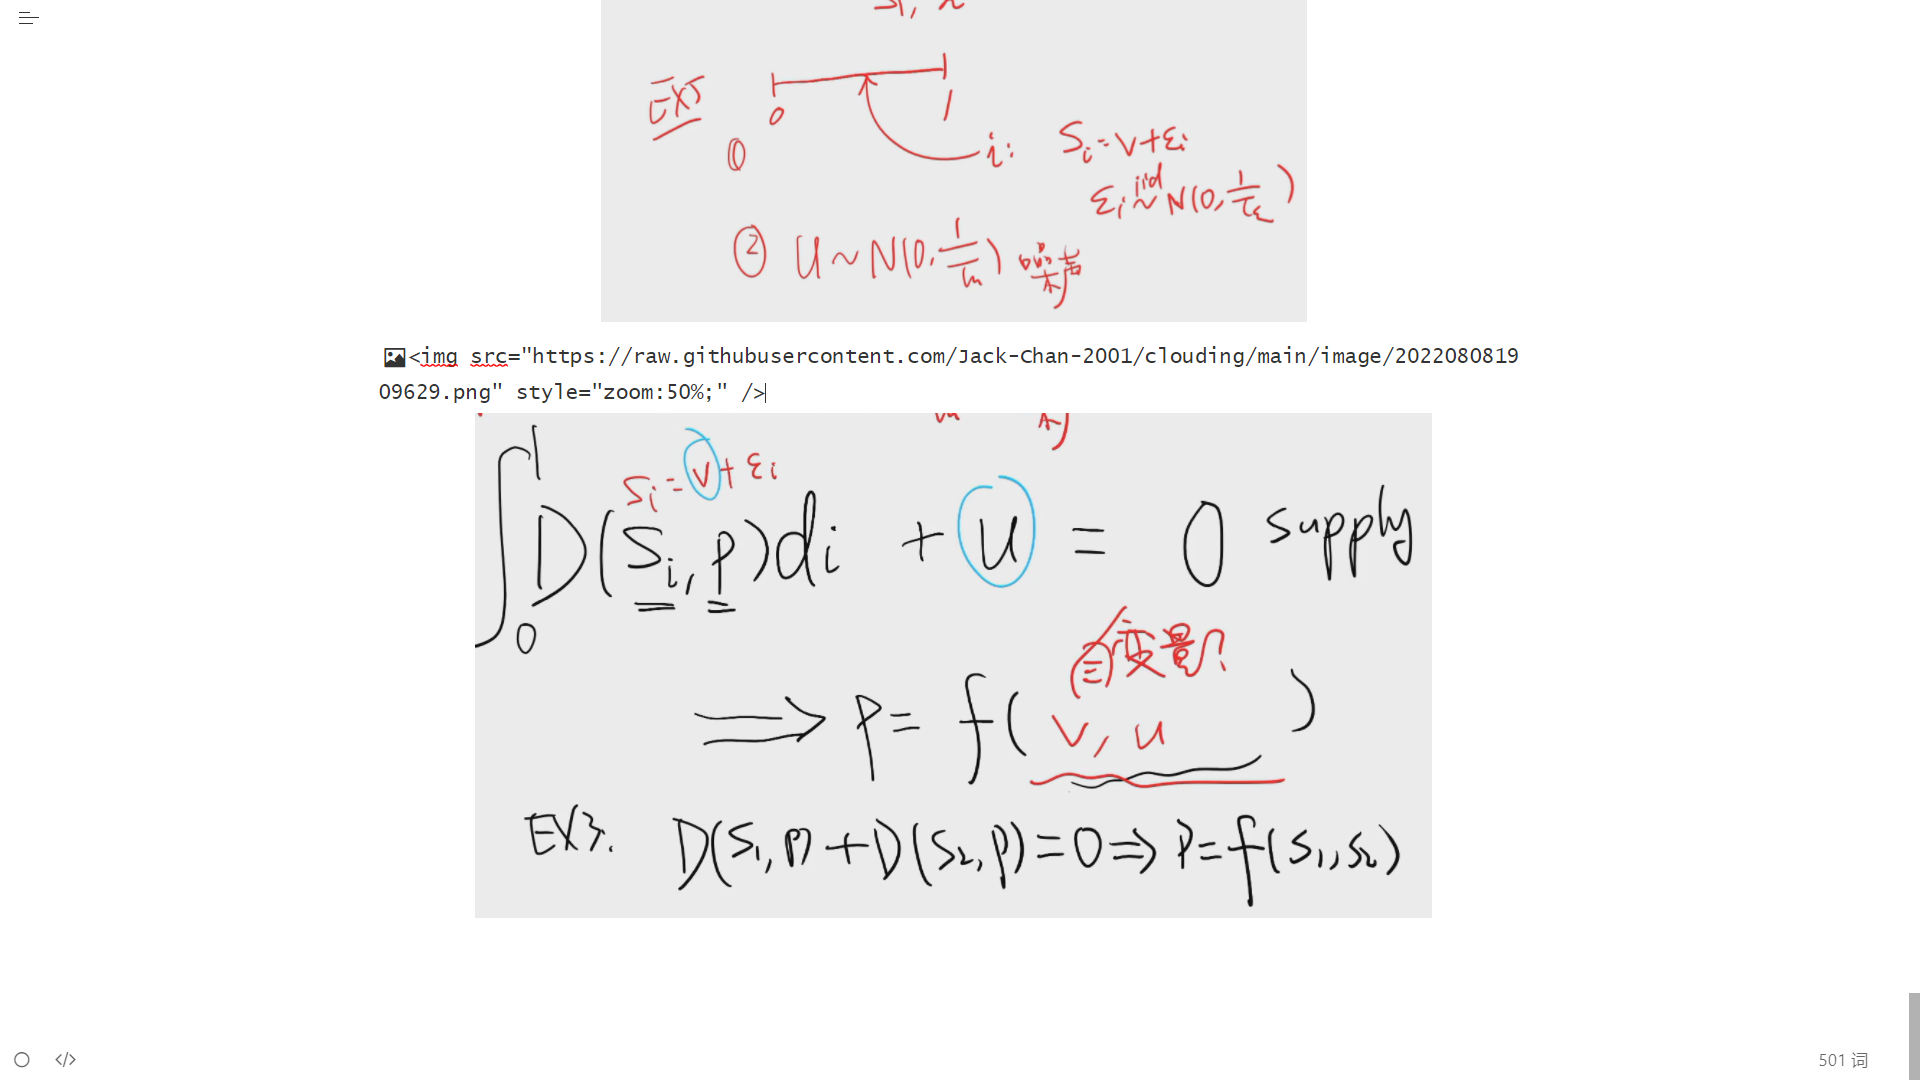 S1, x
EX
0 1
① i: Si = v + εi
εi iid ~ N(0, 1/τε)
② u ~ N(0, 1/τu) 噪声
<img src="https://raw.githubusercontent.com/Jack-Chan-2001/clouding/main/image/2022080819
09629.png" style="zoom:50%;" />
Si = v + εi
∫₀¹ D(Si, p) di + u = 0 supply
自变量?
⟹ p = f( v, u )
EX3. D(S1, p) + D(S2, p) = 0 ⟹ p = f(S1, S2)
501 词